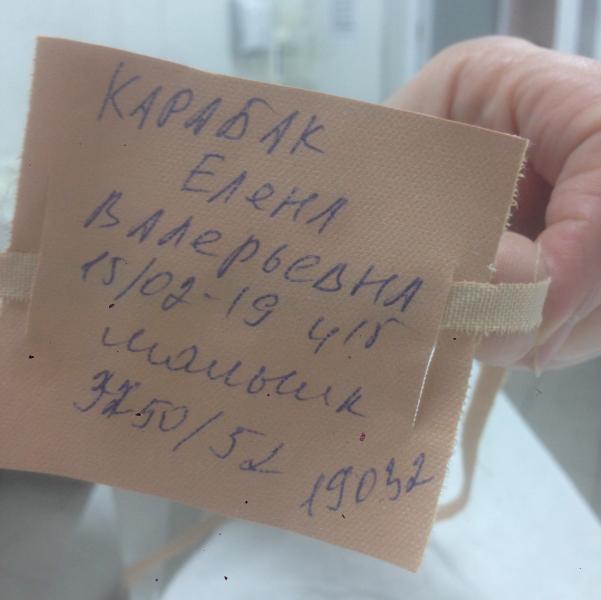 КАРАБАК
Елена
Валерьевна
15/02-19 4 15
мальчик
3250/52
19032